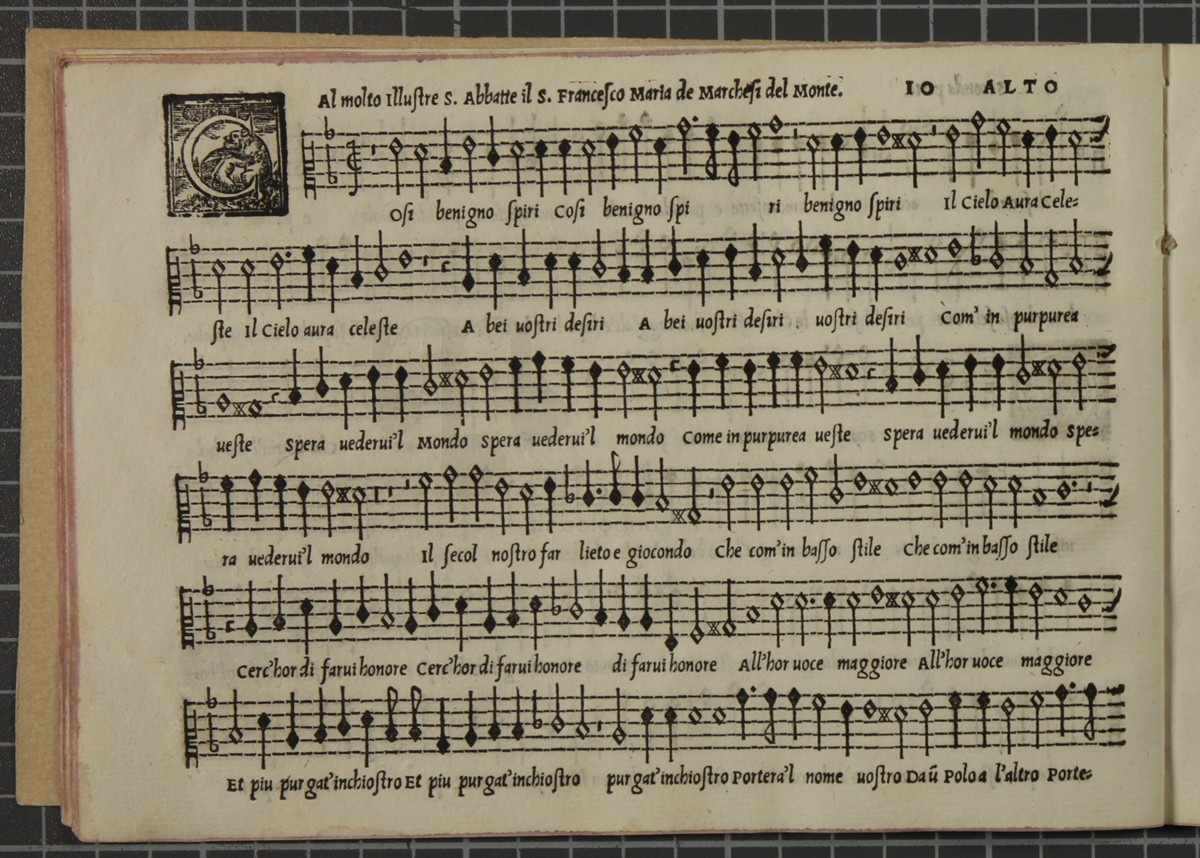 Al molto Illuſtre S. Abbatte il S. Franceſco Maria de Marcheſi del Monte. IO ALTO
C
Oſi benigno ſpiri Coſi benigno ſpi ri benigno ſpiri Il Cielo Aura Cele=
ſte Il Cielo aura celeſte A bei uoſtri deſiri A bei uoſtri deſiri . uoſtri deſiri Com' in purpurea
ueſte Spera uederui'l Mondo Spera uederui'l mondo Come in purpurea ueſte Spera uederui'l mondo Spe=
ra uederui'l mondo Il ſecol noſtro far lieto e giocondo Che com'in baſſo ſtile Che com'in baſſo ſtile
Cerc'hor di farui honore Cerc'hor di farui honore di farui honore All'hor uoce maggiore All'hor uoce maggiore
Et piu purgat'inchioſtro Et piu purgat'inchioſtro purgat'inchioſtro Portera'l nome uoſtro Da ũ Polo a l'altro Porte=